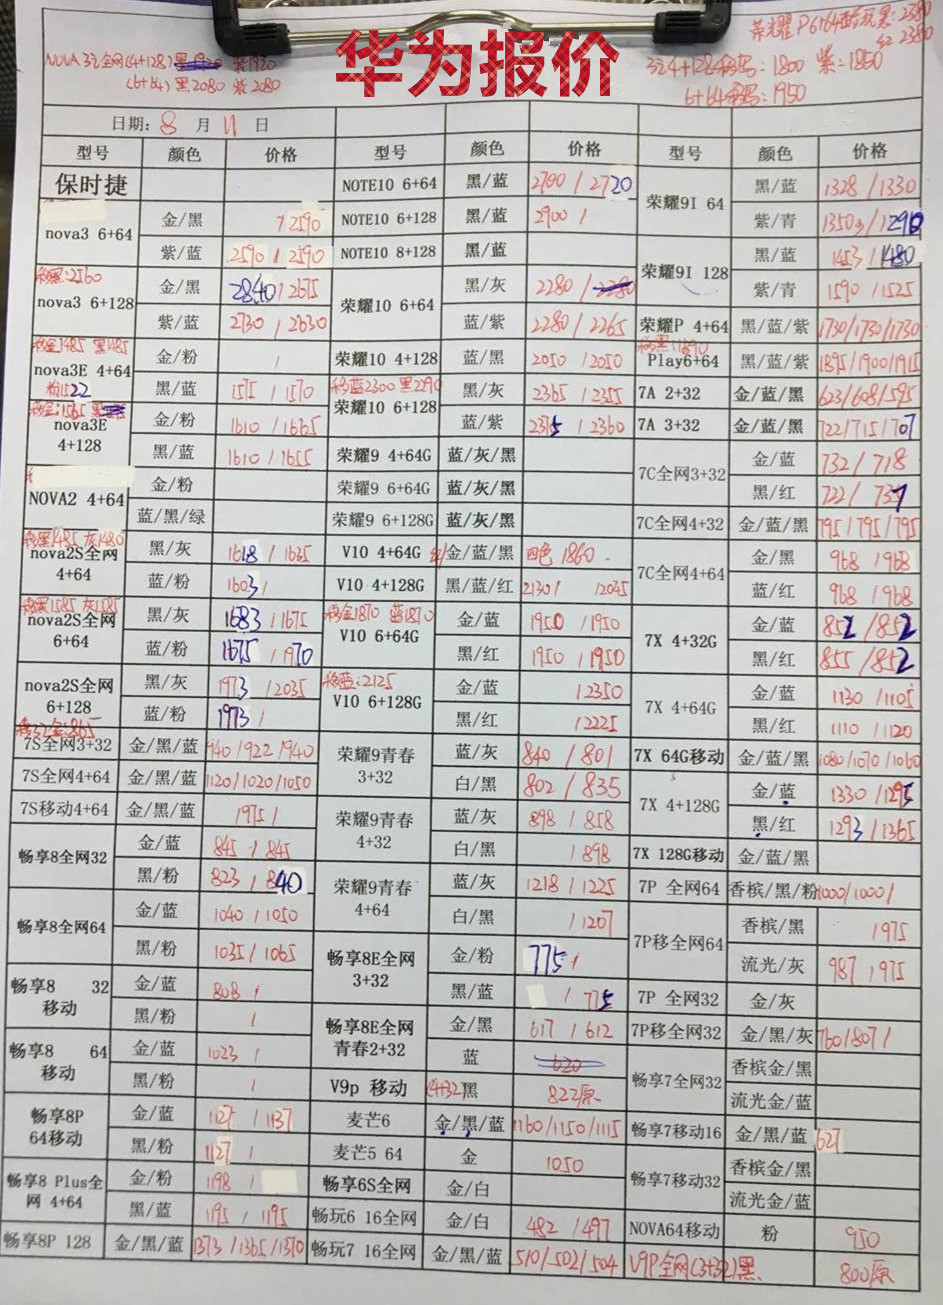 华为报价
NOVA 3i 全网(4+128) 紫1920
(6+64) 黑2080 紫2080
3i 4+128移动:1800 紫:1850
6+64移动:1950
日期: 8 月 11 日
型号 颜色 价格 型号 颜色 价格 型号 颜色 价格
保时捷 NOTE10 6+64 黑/蓝 2700 / 2720 荣耀9I 64 黑/蓝 1328 / 1330
nova3 6+64 金/黑 / 2590 NOTE10 6+128 黑/蓝 2900 / 紫/青
紫/蓝 2590 / 2590 NOTE10 8+128 黑/蓝 荣耀9I 128 黑/蓝 1453 / 1480
移黑:2560
nova3 6+128 金/黑 2840 / 2675 荣耀10 6+64 黑/灰 2280 / 紫/青 1590 / 1525
紫/蓝 2730 / 2630 蓝/紫 2280 / 2265 荣耀P 4+64 黑/蓝/紫 1730/1730/1730
移金1485 黑1485
nova3E 4+64 金/粉 / 荣耀10 4+128 蓝/黑 2050 / 2050 Play6+64 黑/蓝/紫 1895/1900/1915
粉1522
黑/蓝 1575 / 1570 移蓝2300 黑2290
荣耀10 6+128 黑/灰 2365 / 2355 7A 2+32 金/蓝/黑 623/608/595
移金:1565
nova3E 4+128 金/粉 1610 / 1665 蓝/紫 2375 / 2360 7A 3+32 金/蓝/黑 722/715/707
黑/蓝 1610 / 1655 荣耀9 4+64G 蓝/灰/黑 7C全网3+32 金/蓝 732 / 718
NOVA2 4+64 金/粉 荣耀9 6+64G 蓝/灰/黑 黑/红 722 / 737
蓝/黑/绿 荣耀9 6+128G 蓝/灰/黑 7C全网4+32 金/蓝/黑 795/795/795
移黑1485 灰1480
nova2S全网 4+64 黑/灰 1618 / 1635 V10 4+64G 金/蓝/黑 四色 1860 7C全网4+64 金/黑 968 / 968
蓝/粉 1603 / V10 4+128G 黑/蓝/红 2130 / 12045 蓝/红 968 / 968
移黑1585 灰1585
nova2S全网 6+64 黑/灰 1683 / 1675 移金1870 蓝1870
V10 6+64G 金/蓝 1950 / 1950 7X 4+32G 金/蓝 852 / 852
蓝/粉 1675 / 1970 黑/红 1950 / 1950 黑/红 855 / 852
nova2S全网 6+128 黑/灰 1973 / 2035 移蓝:2125
V10 6+128G 金/蓝 / 2350 7X 4+64G 金/蓝 1130 / 1105
蓝/粉 1973 / 黑/红 / 2225 黑/红 1110 / 1120
移32金:865
7S全网3+32 金/黑/蓝 940/922/940 荣耀9青春 3+32 蓝/灰 840 / 801 7X 64G移动 金/蓝/黑 1080/1070/1060
7S全网4+64 金/黑/蓝 1120/1020/1050 白/黑 802 / 835 7X 4+128G 金/蓝 1330 / 1295
7S移动4+64 金/黑/蓝 1975 / 荣耀9青春 4+32 蓝/灰 898 / 858 黑/红 1293 / 1365
畅享8全网32 金/蓝 845 / 845 白/黑 / 898 7X 128G移动 金/蓝/黑
黑/粉 823 / 840 荣耀9青春 4+64 蓝/灰 1218 / 1225 7P 全网64 香槟/黑/粉 1000/1000/
畅享8全网64 金/蓝 1040 / 1050 白/黑 / 1207 7P移全网64 香槟/黑 / 975
黑/粉 1035 / 1065 畅享8E全网 3+32 金/粉 775 / 流光/灰 987 / 975
畅享8 32 移动 金/蓝 808 / 黑/蓝 / 775 7P 全网32 金/灰
黑/粉 / 畅享8E全网 青春2+32 金/黑 617 / 612 7P移全网32 金/黑/灰 760/807/
畅享8 64 移动 金/蓝 1023 / 蓝 620 畅享7全网32 香槟金/黑
黑/粉 / V9p 移动 (4+32)黑 822原 流光金/蓝
畅享8P 64移动 金/蓝 1127 / 1137 麦芒6 金/黑/蓝 1160/1150/1115 畅享7移动16 金/黑/蓝 627
黑/粉 1127 / 麦芒5 64 金 1050 畅享7移动32 香槟金/黑
畅享8 Plus全网 4+64 金/粉 1198 / 畅享6S全网 金/白 流光金/蓝
黑/蓝 1195 / 1195 畅玩6 16全网 金/白 482 / 497 NOVA64移动 粉 950
畅享8P 128 金/黑/蓝 1373/1365/1370 畅玩7 16全网 金/黑/蓝 510/502/504 V9P全网(3+32)黑 800原